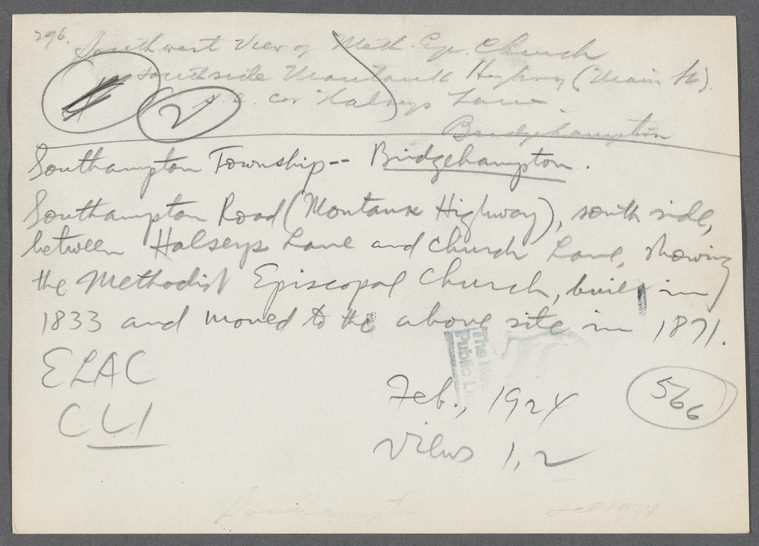 296.
Southwest View of Meth. Ep. Church
southside Montauk Highway (Main St).
s.e. cor Halseys Lane.
2
Bridgehampton
Southampton Township-- Bridgehampton.
Southampton Road (Montauk Highway), south side,
between Halseys Lane and Church Lane, showing
the Methodist Episcopal Church, built in
1833 and moved to the above site in 1871.
The New
Public Li
ELAC
CLI
Feb., 1924
566
Views 1, 2
Southampton